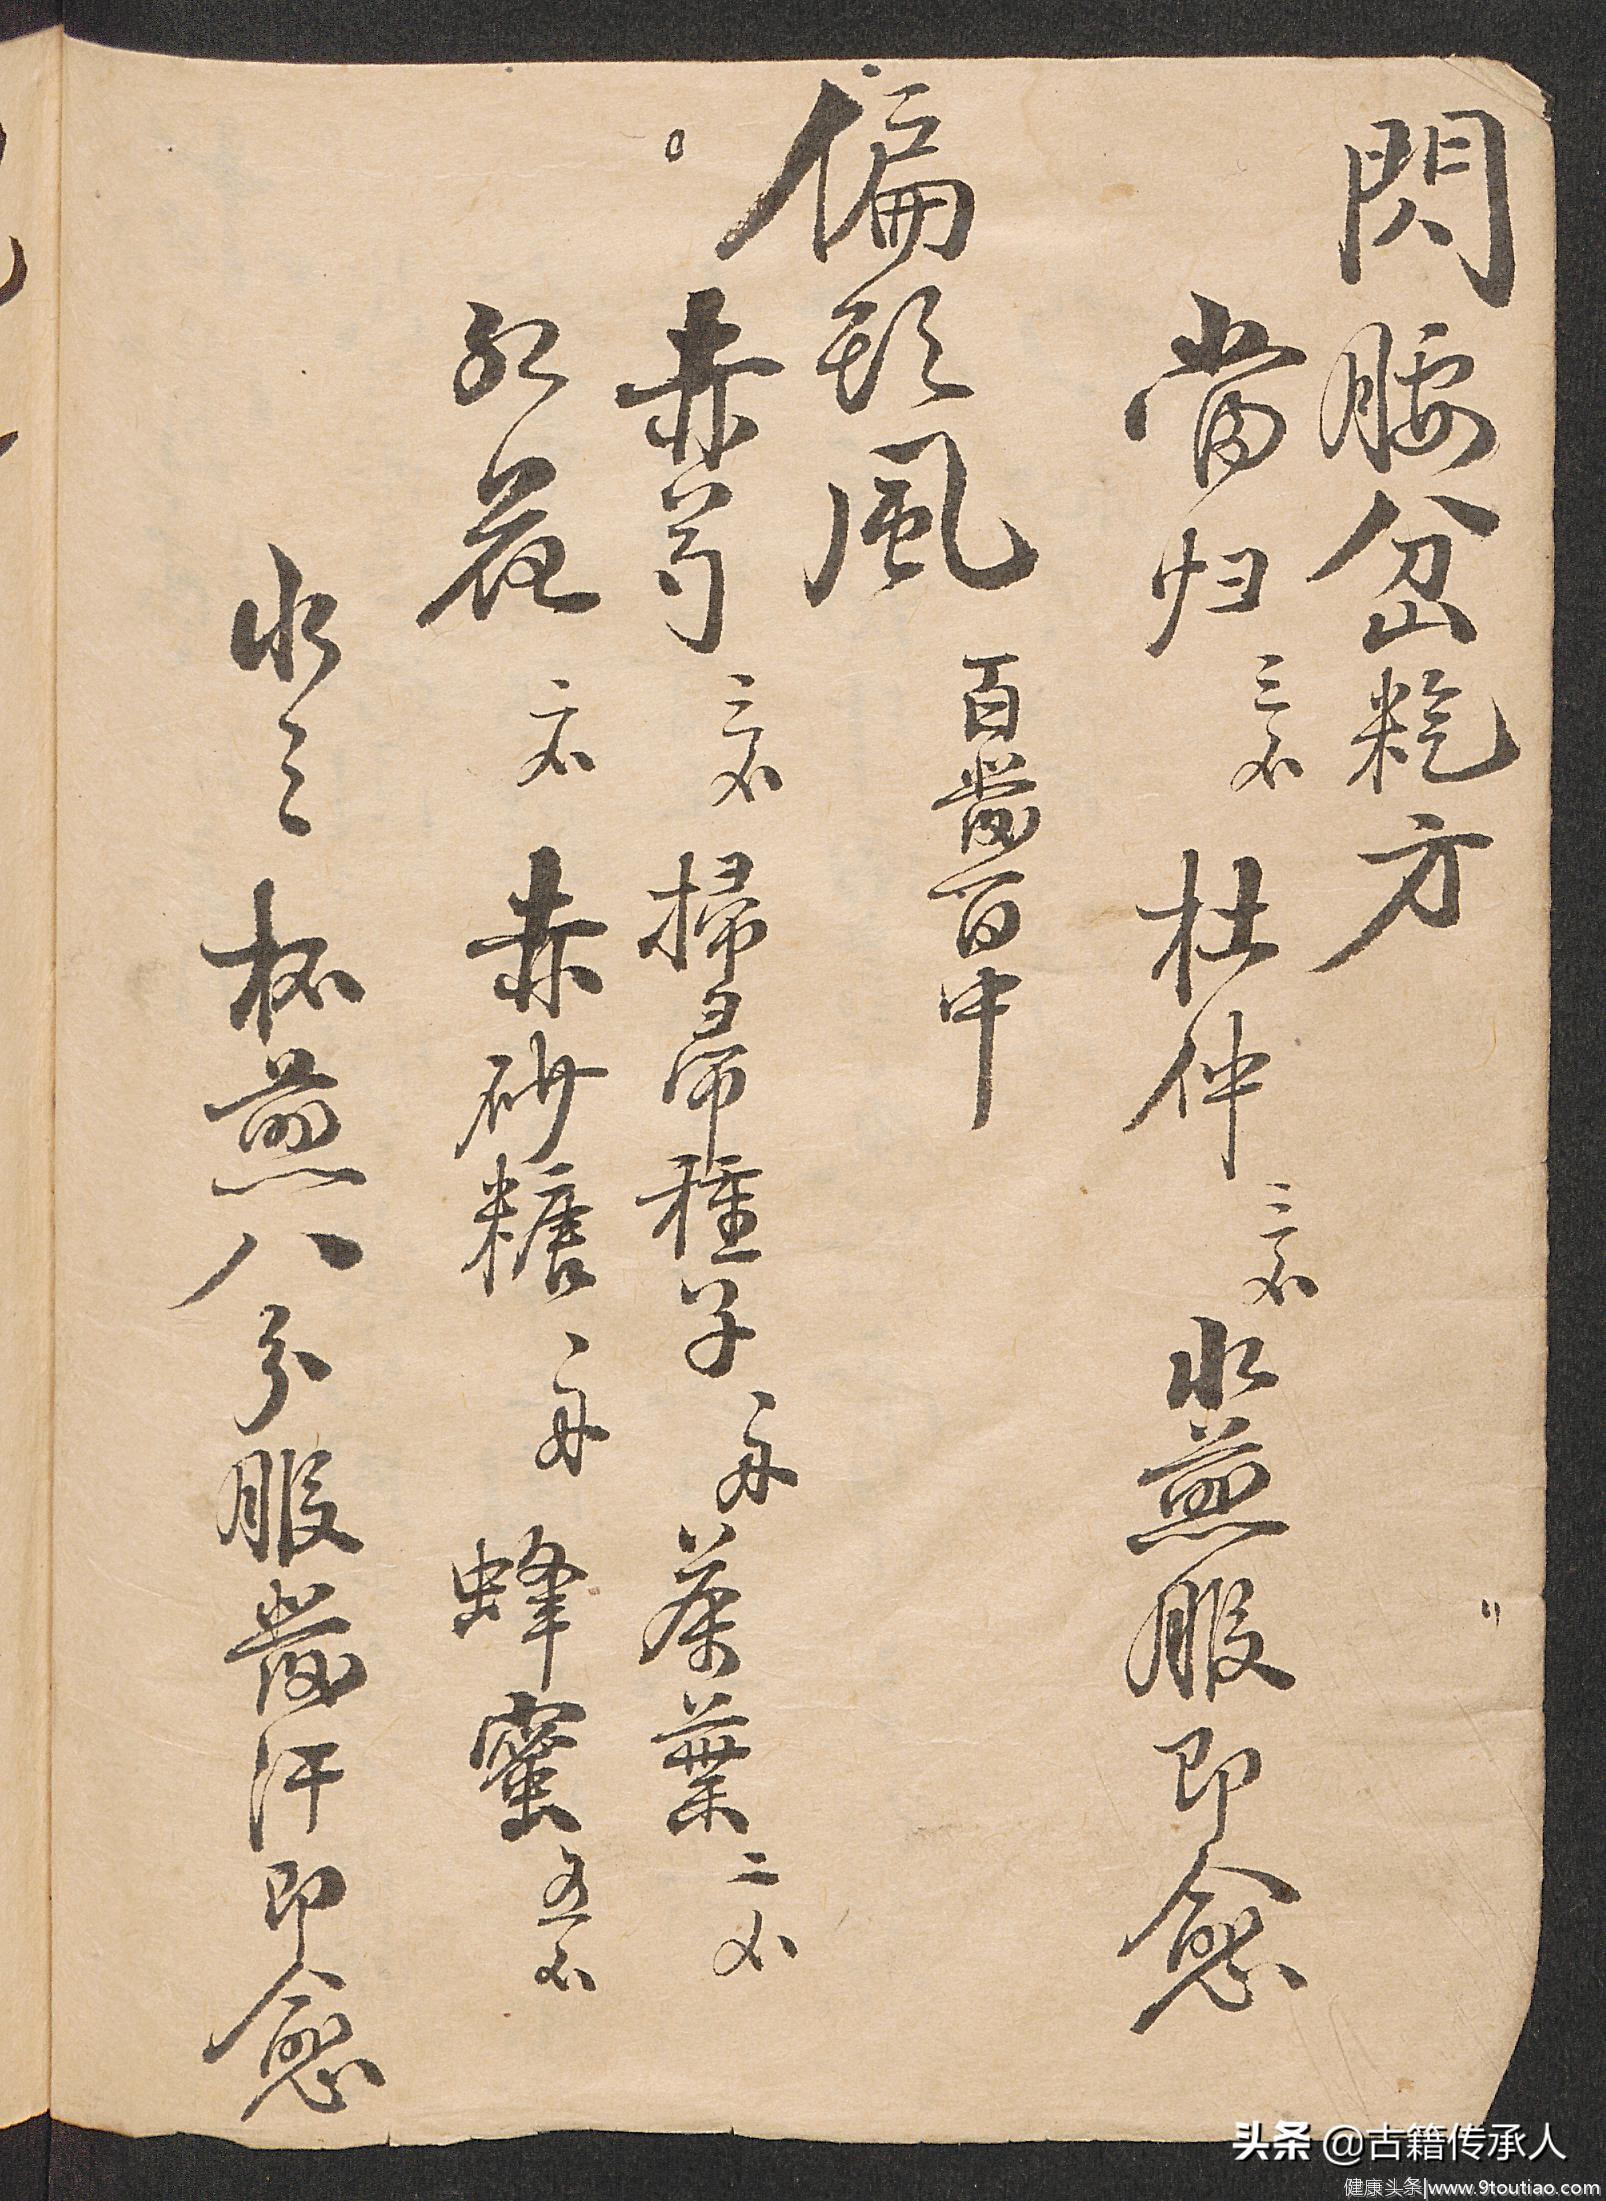 閃腰岔粃方
當归 三木 杜仲 三木 水煎服即愈
百發百中
偏頭風
赤芍 二木 掃帚種子 一舟 茶葉 二木
红花 二木 赤砂糖 一舟 蜂蜜 五木
水三杯煎八分服發汗即愈
头条 @古籍传承人
健康头条|www.9toutiao.com